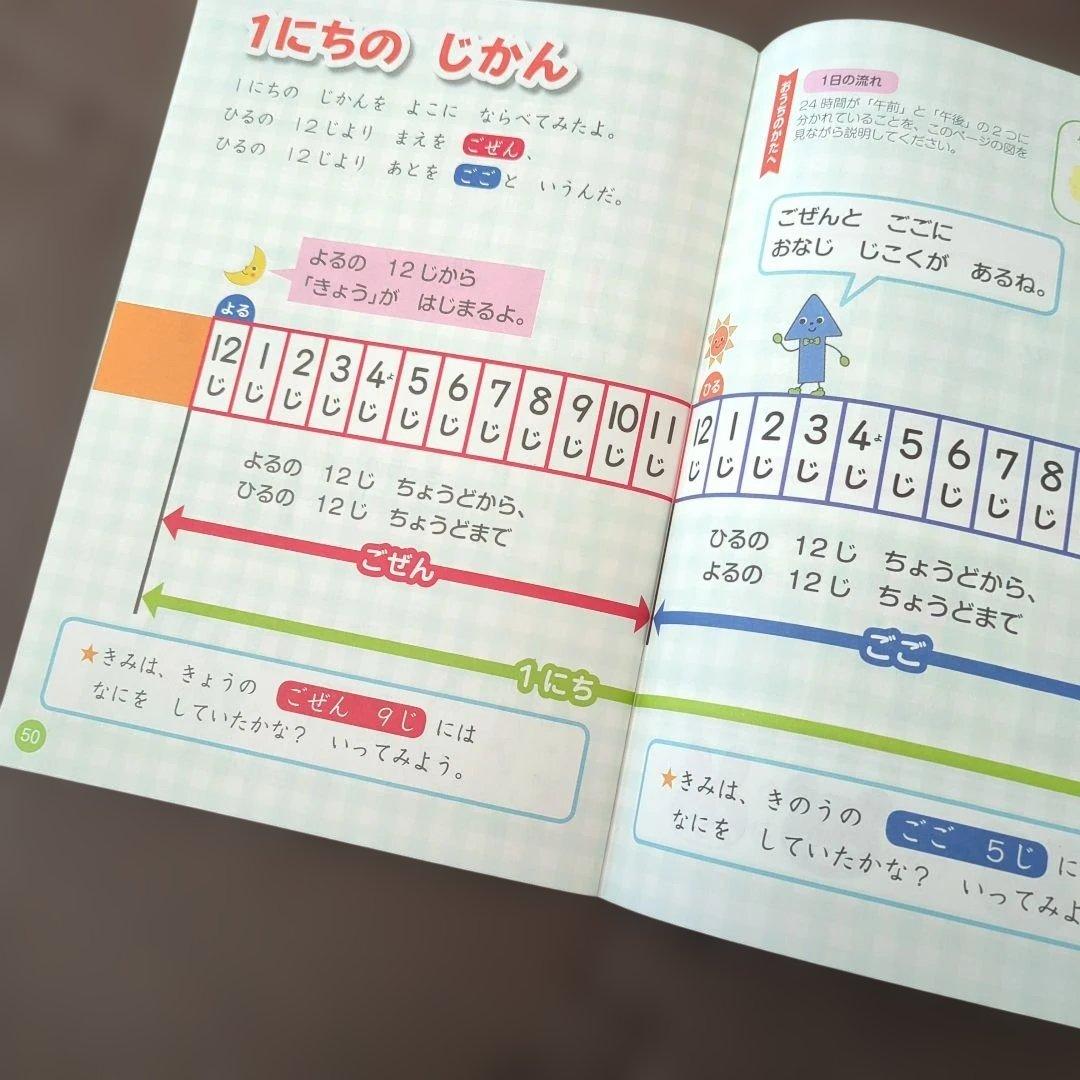 1にちの じかん
1にちの じかんを よこに ならべてみたよ。
ひるの 12じより まえを ごぜん、
ひるの 12じより あとを ごごと いうんだ。
よるの 12じから
「きょう」が はじまるよ。
よる
12じ 1じ 2じ 3じ 4じ 5じ 6じ 7じ 8じ 9じ 10じ 11じ
よ
よるの 12じ ちょうどから、
ひるの 12じ ちょうどまで
ごぜん
1にち
★きみは、きょうの ごぜん 9じ には
なにを していたかな? いってみよう。
50
おうちのかたへ
1日の流れ
24時間が「午前」と「午後」の2つに
分かれていることを、このページの図を
見ながら説明してください。
ごぜんと ごごに
おなじ じこくが あるね。
ひる
12じ 1じ 2じ 3じ 4じ 5じ 6じ 7じ 8じ
よ
ひるの 12じ ちょうどから、
よるの 12じ ちょうどまで
ごご
★きみは、きのうの ごご 5じ に
なにを していたかな? いってみよ